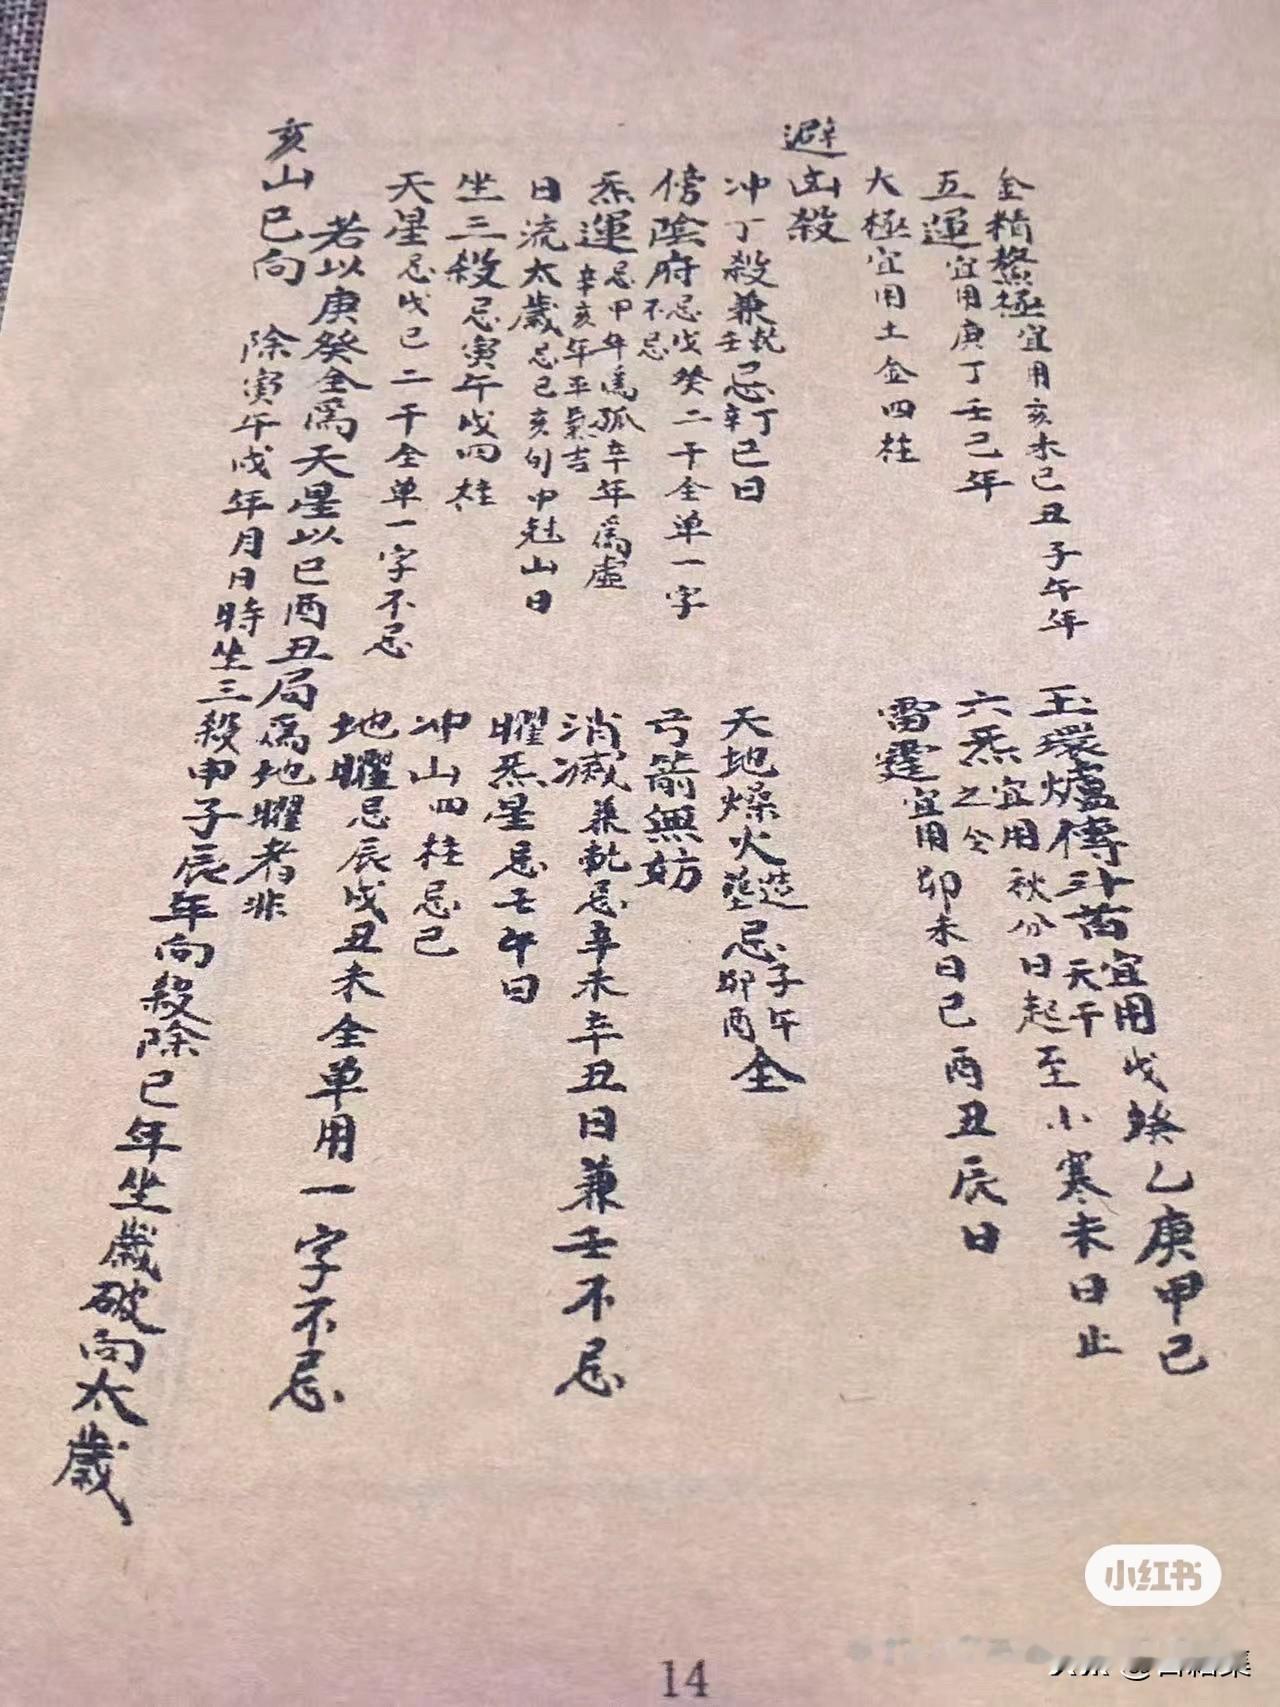 金精鰲極宜用亥未巳丑子午年
玉環爐傳宜用戊癸乙庚甲己
天干
五運宜用庚丁壬己年
六炁宜用秋分日起至小寒未日止
大極宜用土金四柱
雷霆宜用卯未日巳酉丑辰日
避凶殺
冲丁殺兼乾壬忌丁辛巳日
天地燥火造葬忌子午卯酉全
傍陰府忌戊癸二干全单一字不忌
弓箭無妨
炁運忌甲年為孤辛年為虛
辛亥年平氣吉
消滅兼乾忌辛未辛丑日兼壬不忌
日流太歲忌己亥旬中尅山日
曜炁星忌壬午日
坐三殺忌寅午戌四柱
冲山四柱忌巳
天星忌戊己二干全单一字不忌
地曜忌辰戌丑未全单用一字不忌
若以庚癸全為天星以巳酉丑局為地曜者非
亥山巳向 除寅午戌年月日時坐三殺申子辰年向殺除巳年坐歲破向太歲
小红书
14